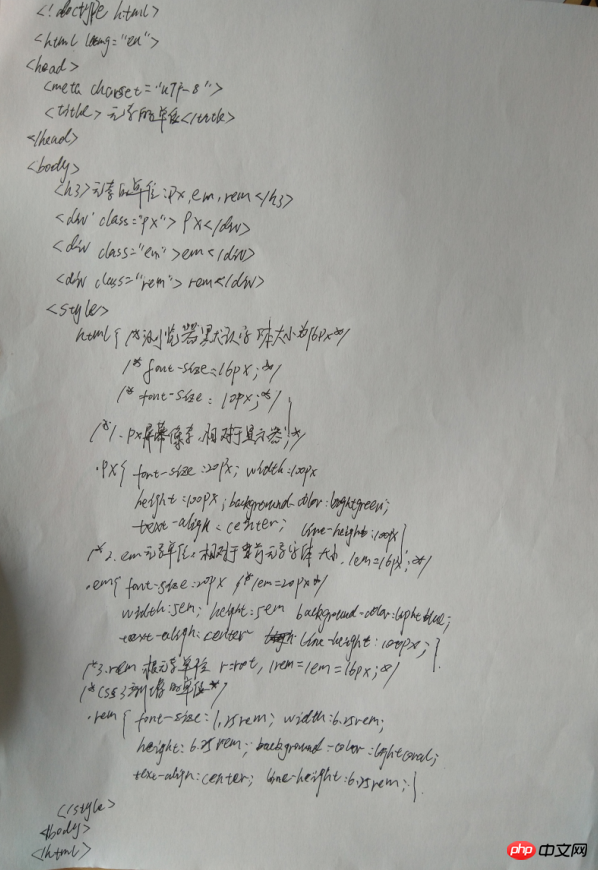 <!doctype html>
<html lang="en">
<head>
<meta charset="utf-8">
<title>元素的单位</title>
</head>
<body>
<h3>元素的单位:px,em,rem</h3>
<div class="px">px</div>
<div class="em">em</div>
<div class="rem">rem</div>
<style>
html{ /*浏览器默认字体大小为16px*/
/* font-size:16px;*/
/* font-size: 10px;*/
}
/*1.px屏幕像素,相对于显示器;*/
.px{ font-size:20px; width:100px
height:100px;background-color:lightgreen;
text-align:center; line-height:100px}
/*2.em元素单位:相对于当前元素字体大小,1em=16px;*/
.em{ font-size:20px /*1em=20px*/
width:5em; height:5em background-color:lightblue;
text-align:center line-height:100px;}
/*3.rem根元素单位 r=root, 1rem=1em=16px;*/
/*css3新增的单位*/
.rem{ font-size:1.25rem; width:6.25rem;
height:6.25rem;background-color:lightcoral;
text-align:center; line-height:6.25rem;}
</style>
</body>
</html>
php 中文网